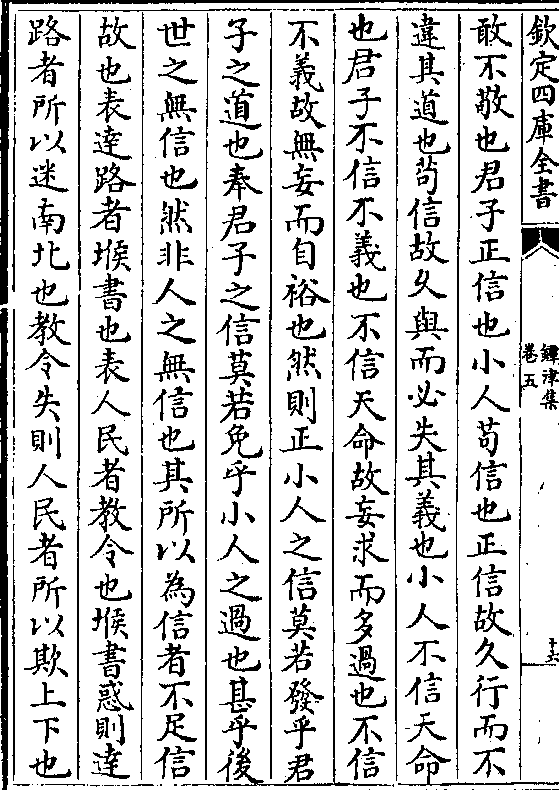 欽定四庫全書
鐔津集
卷五
十六
敢不敬也君子正信也小人苟信也正信故久行而不
違其道也苟信故久與而必失其義也小人不信天命
也君子不信不義也不信天命故妄求而多過也不信
不義故無妄而自裕也然則正小人之信莫若發乎君
子之道也奉君子之信莫若免乎小人之過也甚乎後
世之無信也然非人之無信也其所以為信者不足信
故也表達路者堠書也表人民者教令也堠書惑則達
路者所以迷南北也教令失則人民者所以欺上下也